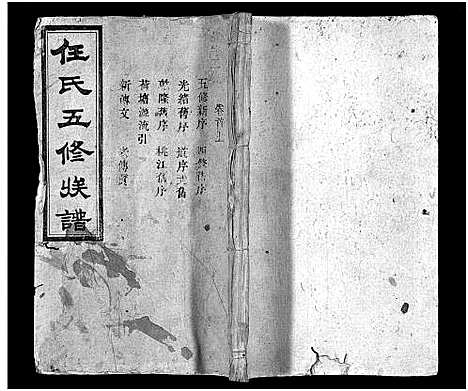 任氏五修族譜
卷首上
五修新序 四修舊序
光緒舊序 道序 舊
乾隆舊序 桃江舊序
荷塘源流引
新傳文 老傳